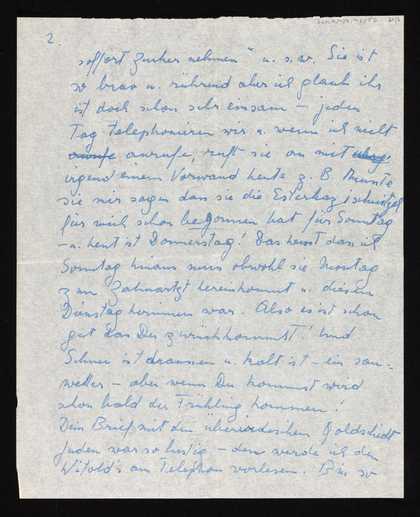 2.
soffort Zucker nehmen" u. s.w. Sie ist
so brav u. rührend aber ich glaub ihr
ist doch schon sehr einsam – jeden
Tag telephonieren wir u. wenn ich nicht
anrufe, ruft sie an mit
irgend einem Vorwand heute z. B. musste
sie mir sagen dass sie die Esterhazyschnitzel
für mich schon begonnen hat für Sonntag
– u. heut ist Donnerstag! Das heisst dass ich
Sonntag hinaus muss obwohl sie Montag
zum Zahnarzt hereinkommt u. diesen
Dienstag herinnen war. Also es ist schon
gut dass Du zurückkommst! Und
Schnee ist draussen u. kalt ist – ein sau=
wetter – aber wenn Du kommst wird
schon bald der Frühling kommen!
Dein Brief mit den Goldstedt
Juden war so lustig – den werde ich den
Witold's am Telephon vorlesen. Bin so